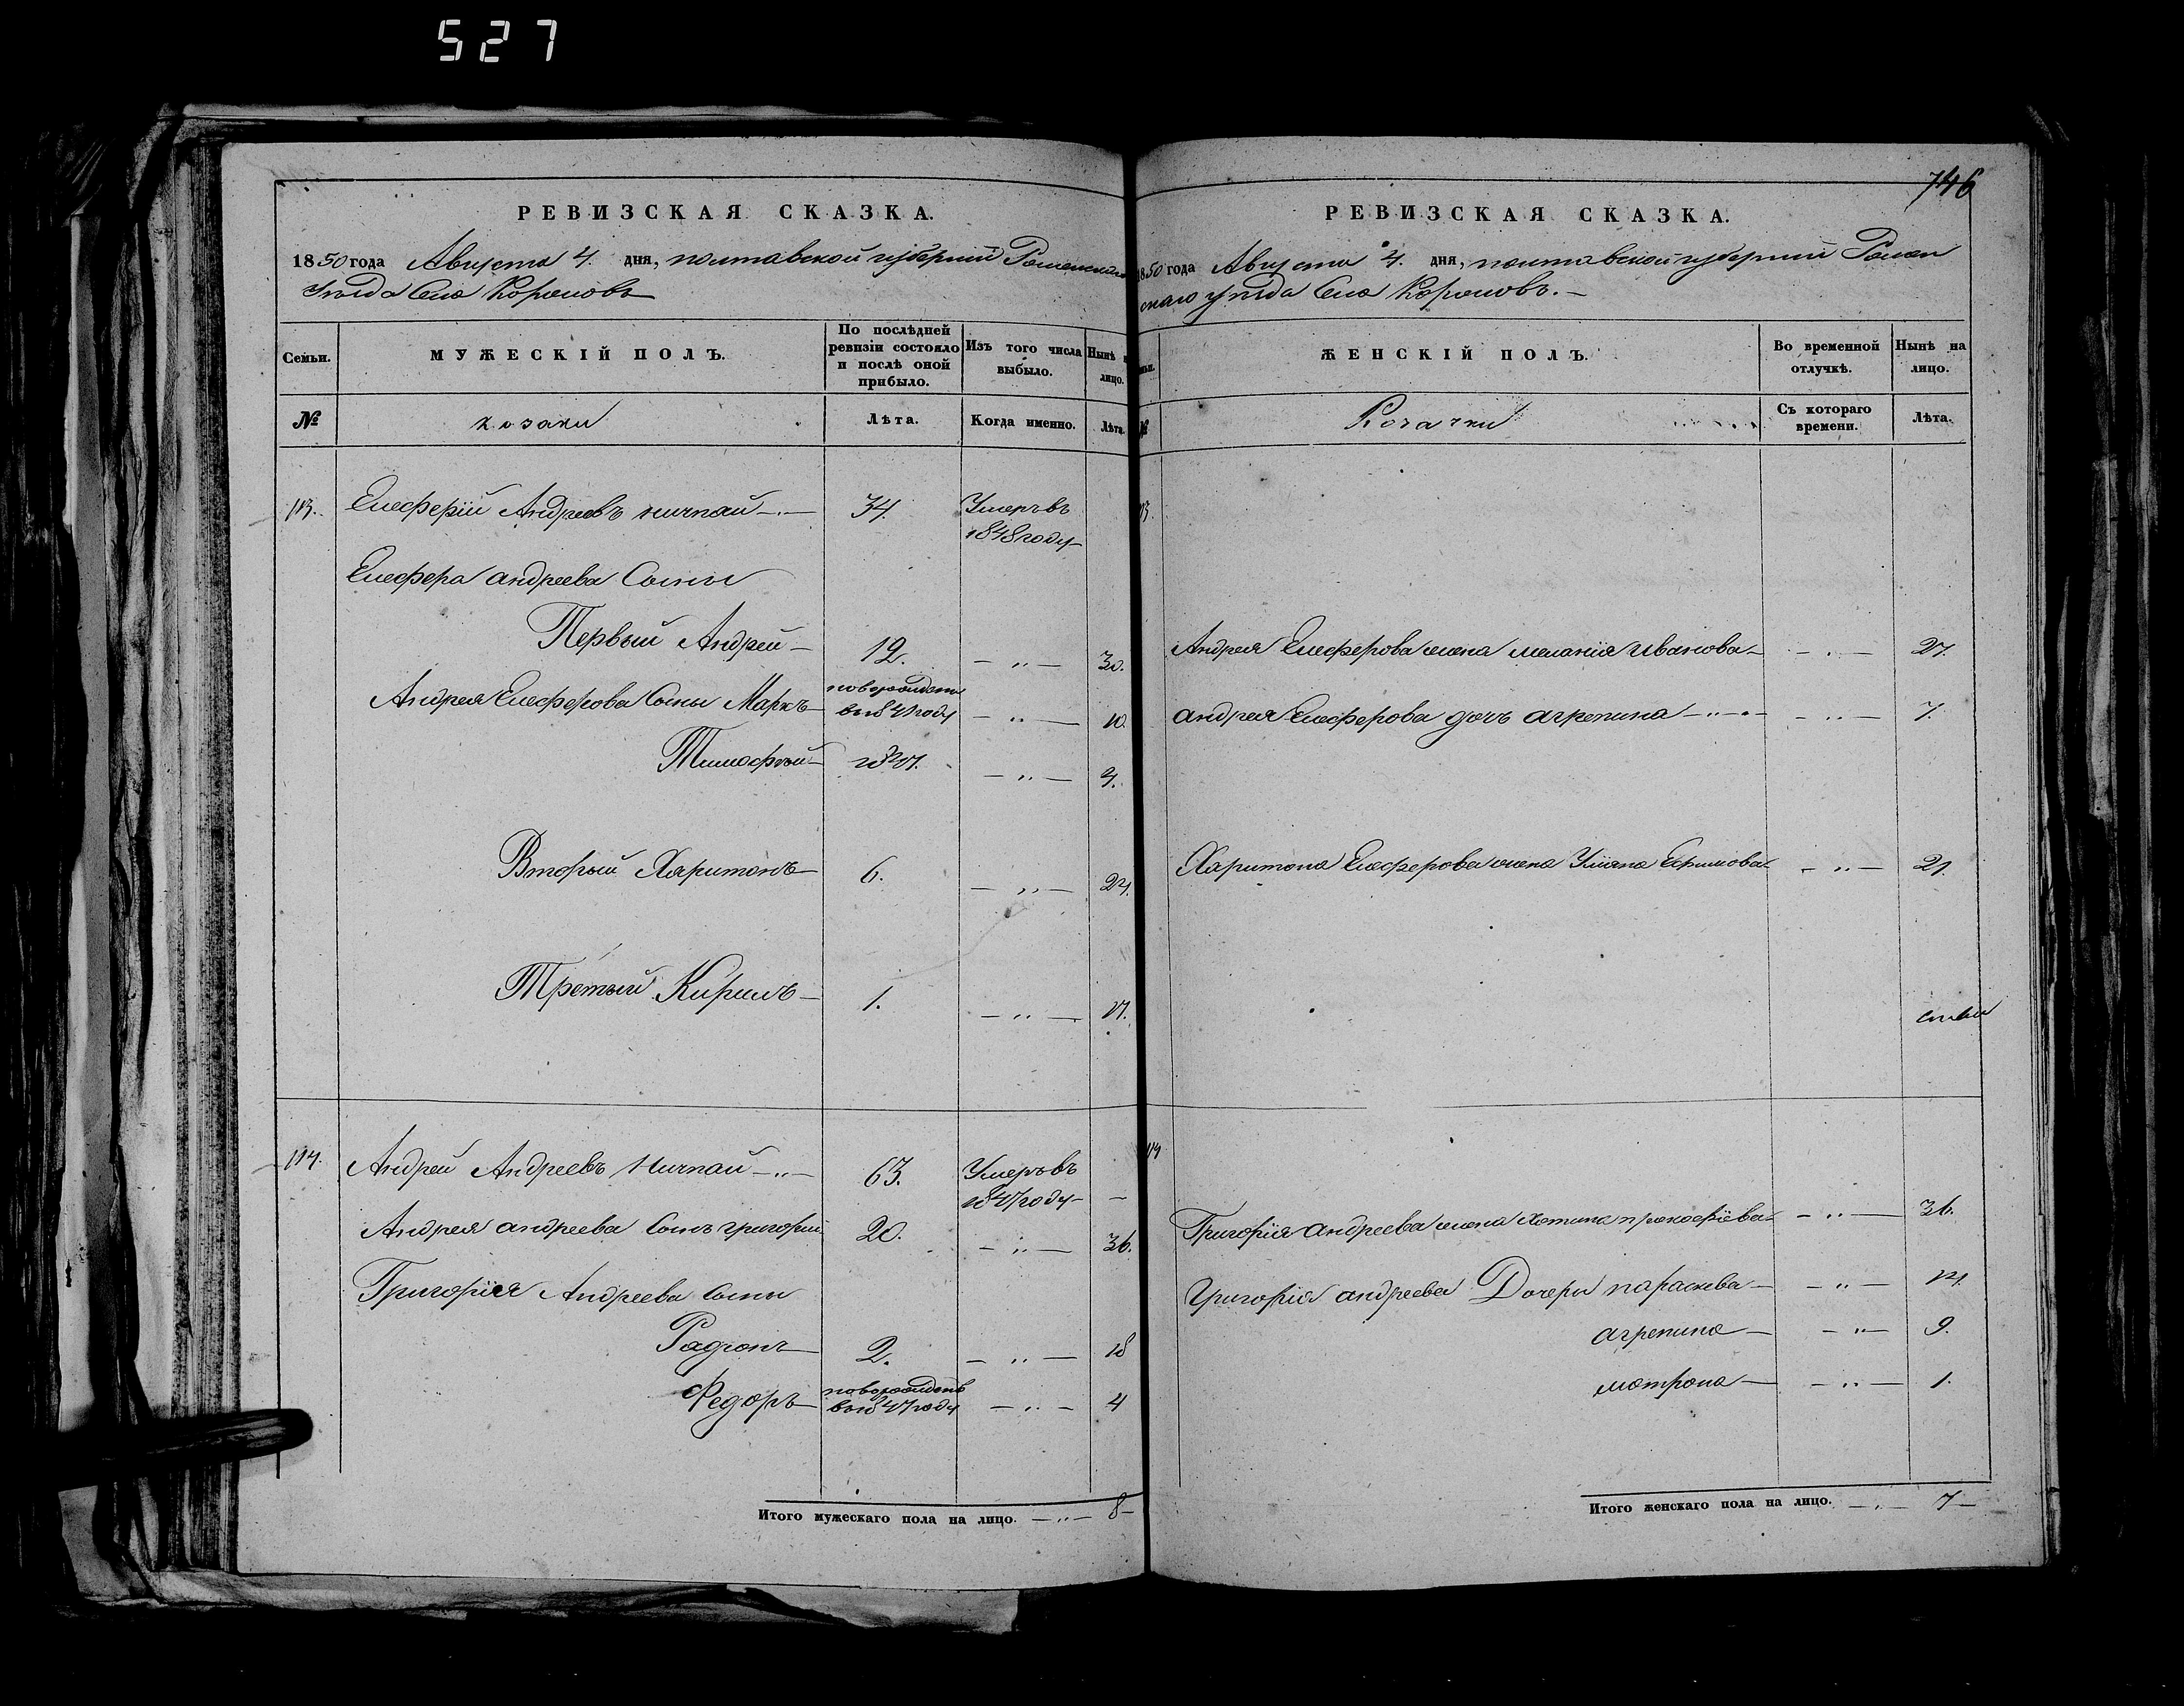 527
РЕВИЗСКАЯ СКАЗКА.
1850 года Августа 4. дня, полтавской губернии Роменскаго
уезда Села Корововъ
Семьи.
МУЖЕСКІЙ ПОЛЪ.
По последней ревизіи состояло и после оной прибыло.
Изъ того числа выбыло.
Ныне на лицо.
№
козаки
Лѣта.
Когда именно.
Лѣта.
113. Елеферій Андреевъ ничпай 34. Умеръ въ
1848 году
Елефера андреева Сыны
Первый Андрей 12. 30.
Андрея Елеферова Сыны Марко новорожденъ 10.
в 1841 году
Тимофей 9.
Вторый Харитонъ 6. 24.
Третый Кирилъ 1. 17.
114. Андрей Андреевъ Ничпай 63. Умеръ въ
1847 году
Андрея андреева Сынъ григорій 20. 36.
Григорія Андреева Сыны
Радіонъ 2. 18
Федоръ новорожденъ 4
в 1847 году
Итого мужескаго пола на лицо. 8
746
РЕВИЗСКАЯ СКАЗКА.
1850 года Августа 4. дня, полтавской губерніи Ромен
скаго уезда Села Корововъ.
ЖЕНСКІЙ ПОЛЪ.
Во временной отлучкѣ.
Нынѣ на лицо.
№
Козачки
Съ котораго времени.
Лѣта.
113.
Андрея Елеферова жена меланія иванова 27.
андрея Елеферова дочь агрепина 7.
Харитона Елеферова жена Уліяна Ефимова 21.
114
Григорія андреева жена хотина прокофіева 36.
Григорія андреева Дочери парасква 14.
агрепина 9.
мотрона 1.
Итого женскаго пола на лицо. 7